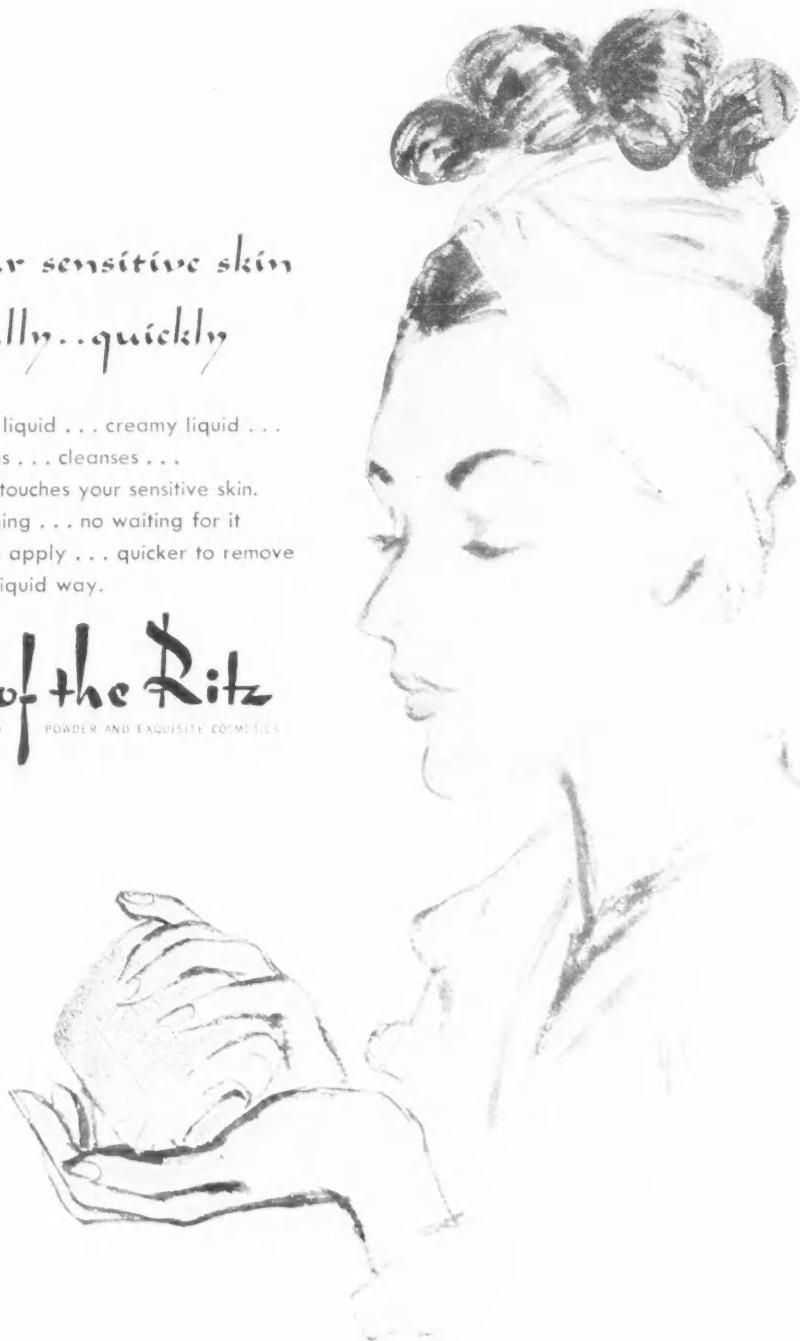 r sensitive skin
lly..quickly
liquid ... creamy liquid ...
s ... cleanses ...
touches your sensitive skin.
ing ... no waiting for it
apply ... quicker to remove
iquid way.
of the Ritz
POWDER AND EXQUISITE COSMETICS